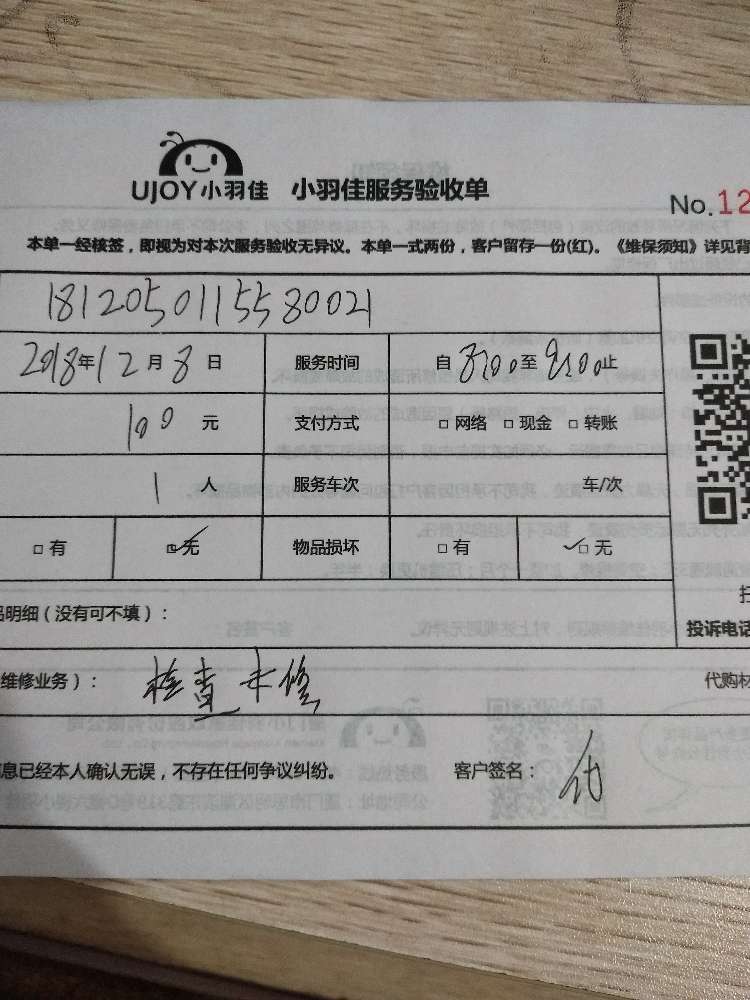 UJOY小羽佳 小羽佳服务验收单
No.12
本单一经核签，即视为对本次服务验收无异议。本单一式两份，客户留存一份(红)。《维保须知》详见背
1812050115580021
2018年12月8日 服务时间 自8:00至9:00止
100元 支付方式 □网络 □现金 □转账
1人 服务车次 车/次
□有 ☑无 物品损坏 □有 ☑无
明细（没有可不填）：
投诉电话
维修业务）： 检查未修 代购材
息已经本人确认无误，不存在任何争议纠纷。 客户签名：